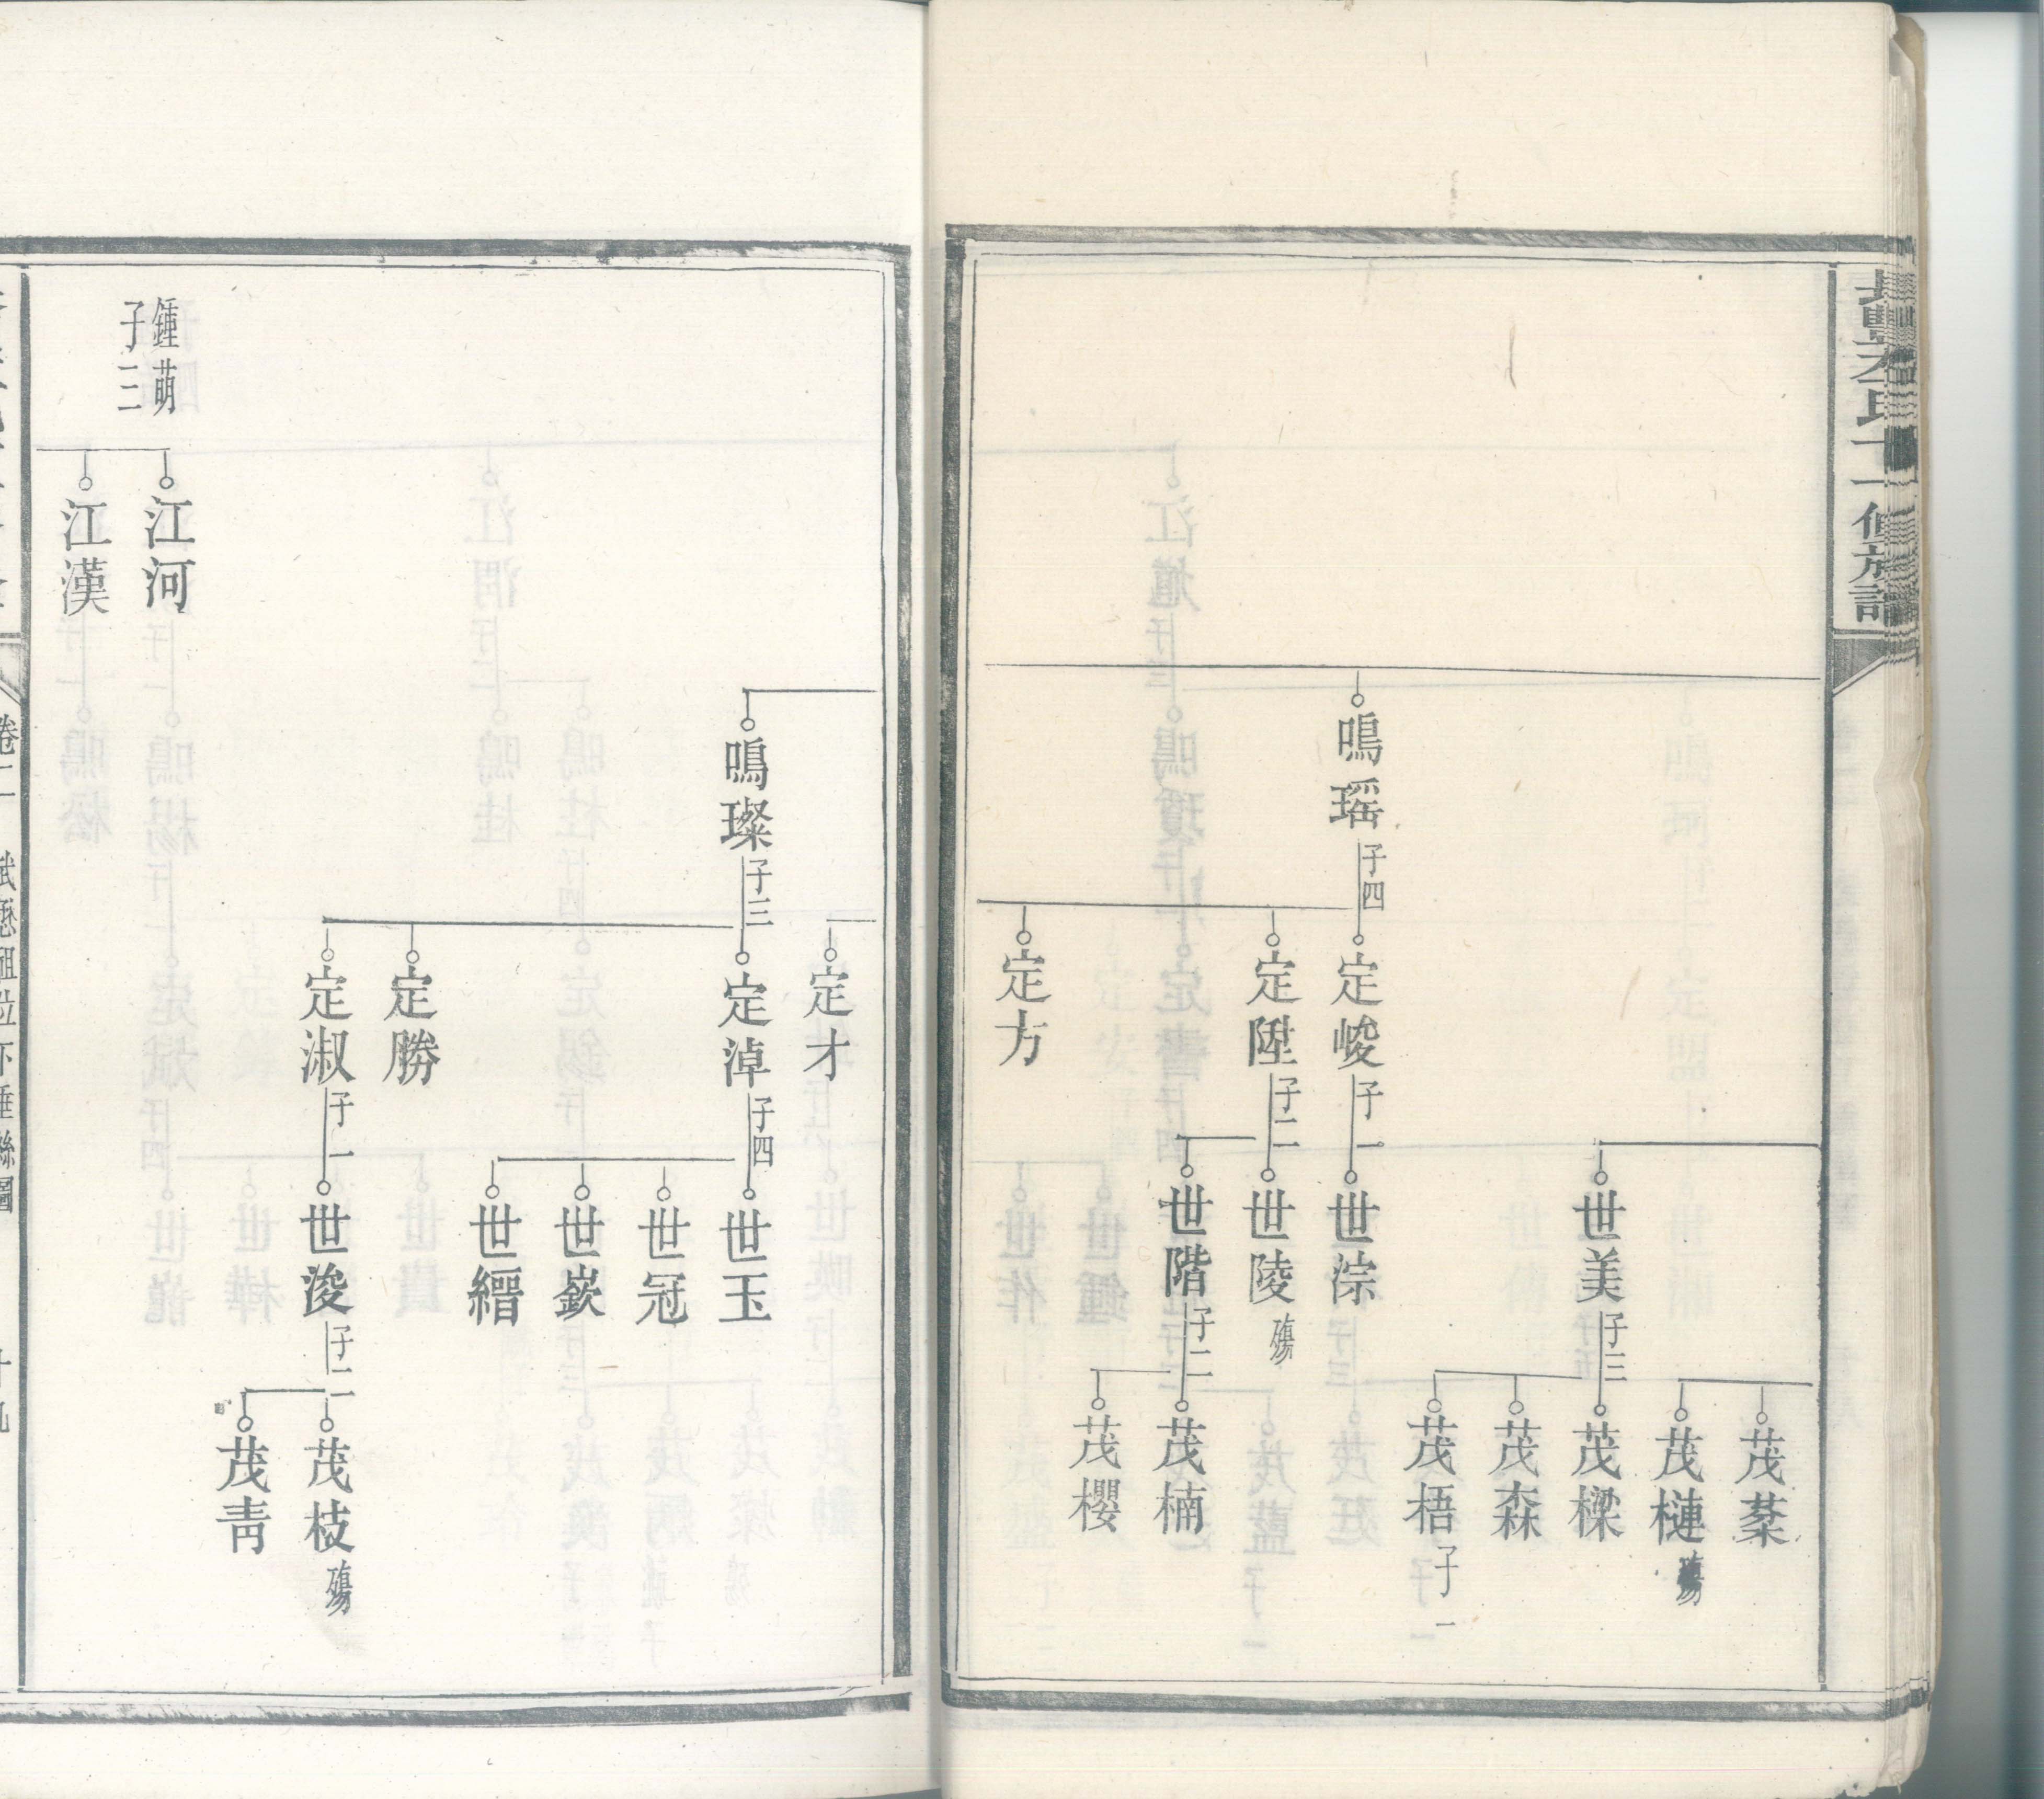 長豐李氏十一修族譜
茂棻
茂槤 殤
世美 子三
茂樑
茂森
茂梧 子一
鳴瑶 子四
定峻 子一
世淙
定陞 子二
世陵 殤
世階 子二
茂楠
茂櫻
定方
定才
鳴璨 子三
定淖 子四
世玉
世冠
世嶔
世縉
定勝
定淑 子一
世浚 子二
茂枝 殤
茂青
鍾萌
子二
江河
江漢
卷二
十九